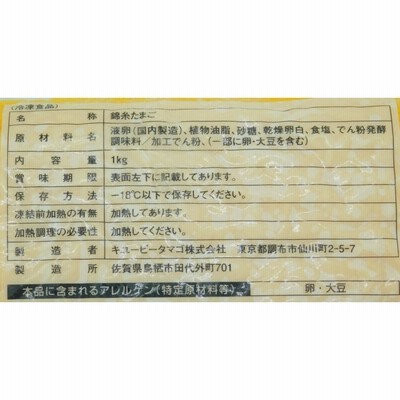 (冷凍食品)
名称 錦糸たまご
原材料名 液卵(国内製造)、植物油脂、砂糖、乾燥卵白、食塩、でん粉発酵
調味料/加工でん粉、(一部に卵・大豆を含む)
内容量 1kg
賞味期限 表面左下に記載してあります。
保存方法 -18℃以下で保存してください。
凍結前加熱の有無 加熱してあります。
加熱調理の必要性 加熱してください。
製造者 キユーピータマゴ株式会社 東京都調布市仙川町2-5-7
製造所 佐賀県鳥栖市田代外町701
本品に含まれるアレルゲン(特定原材料等) 卵・大豆